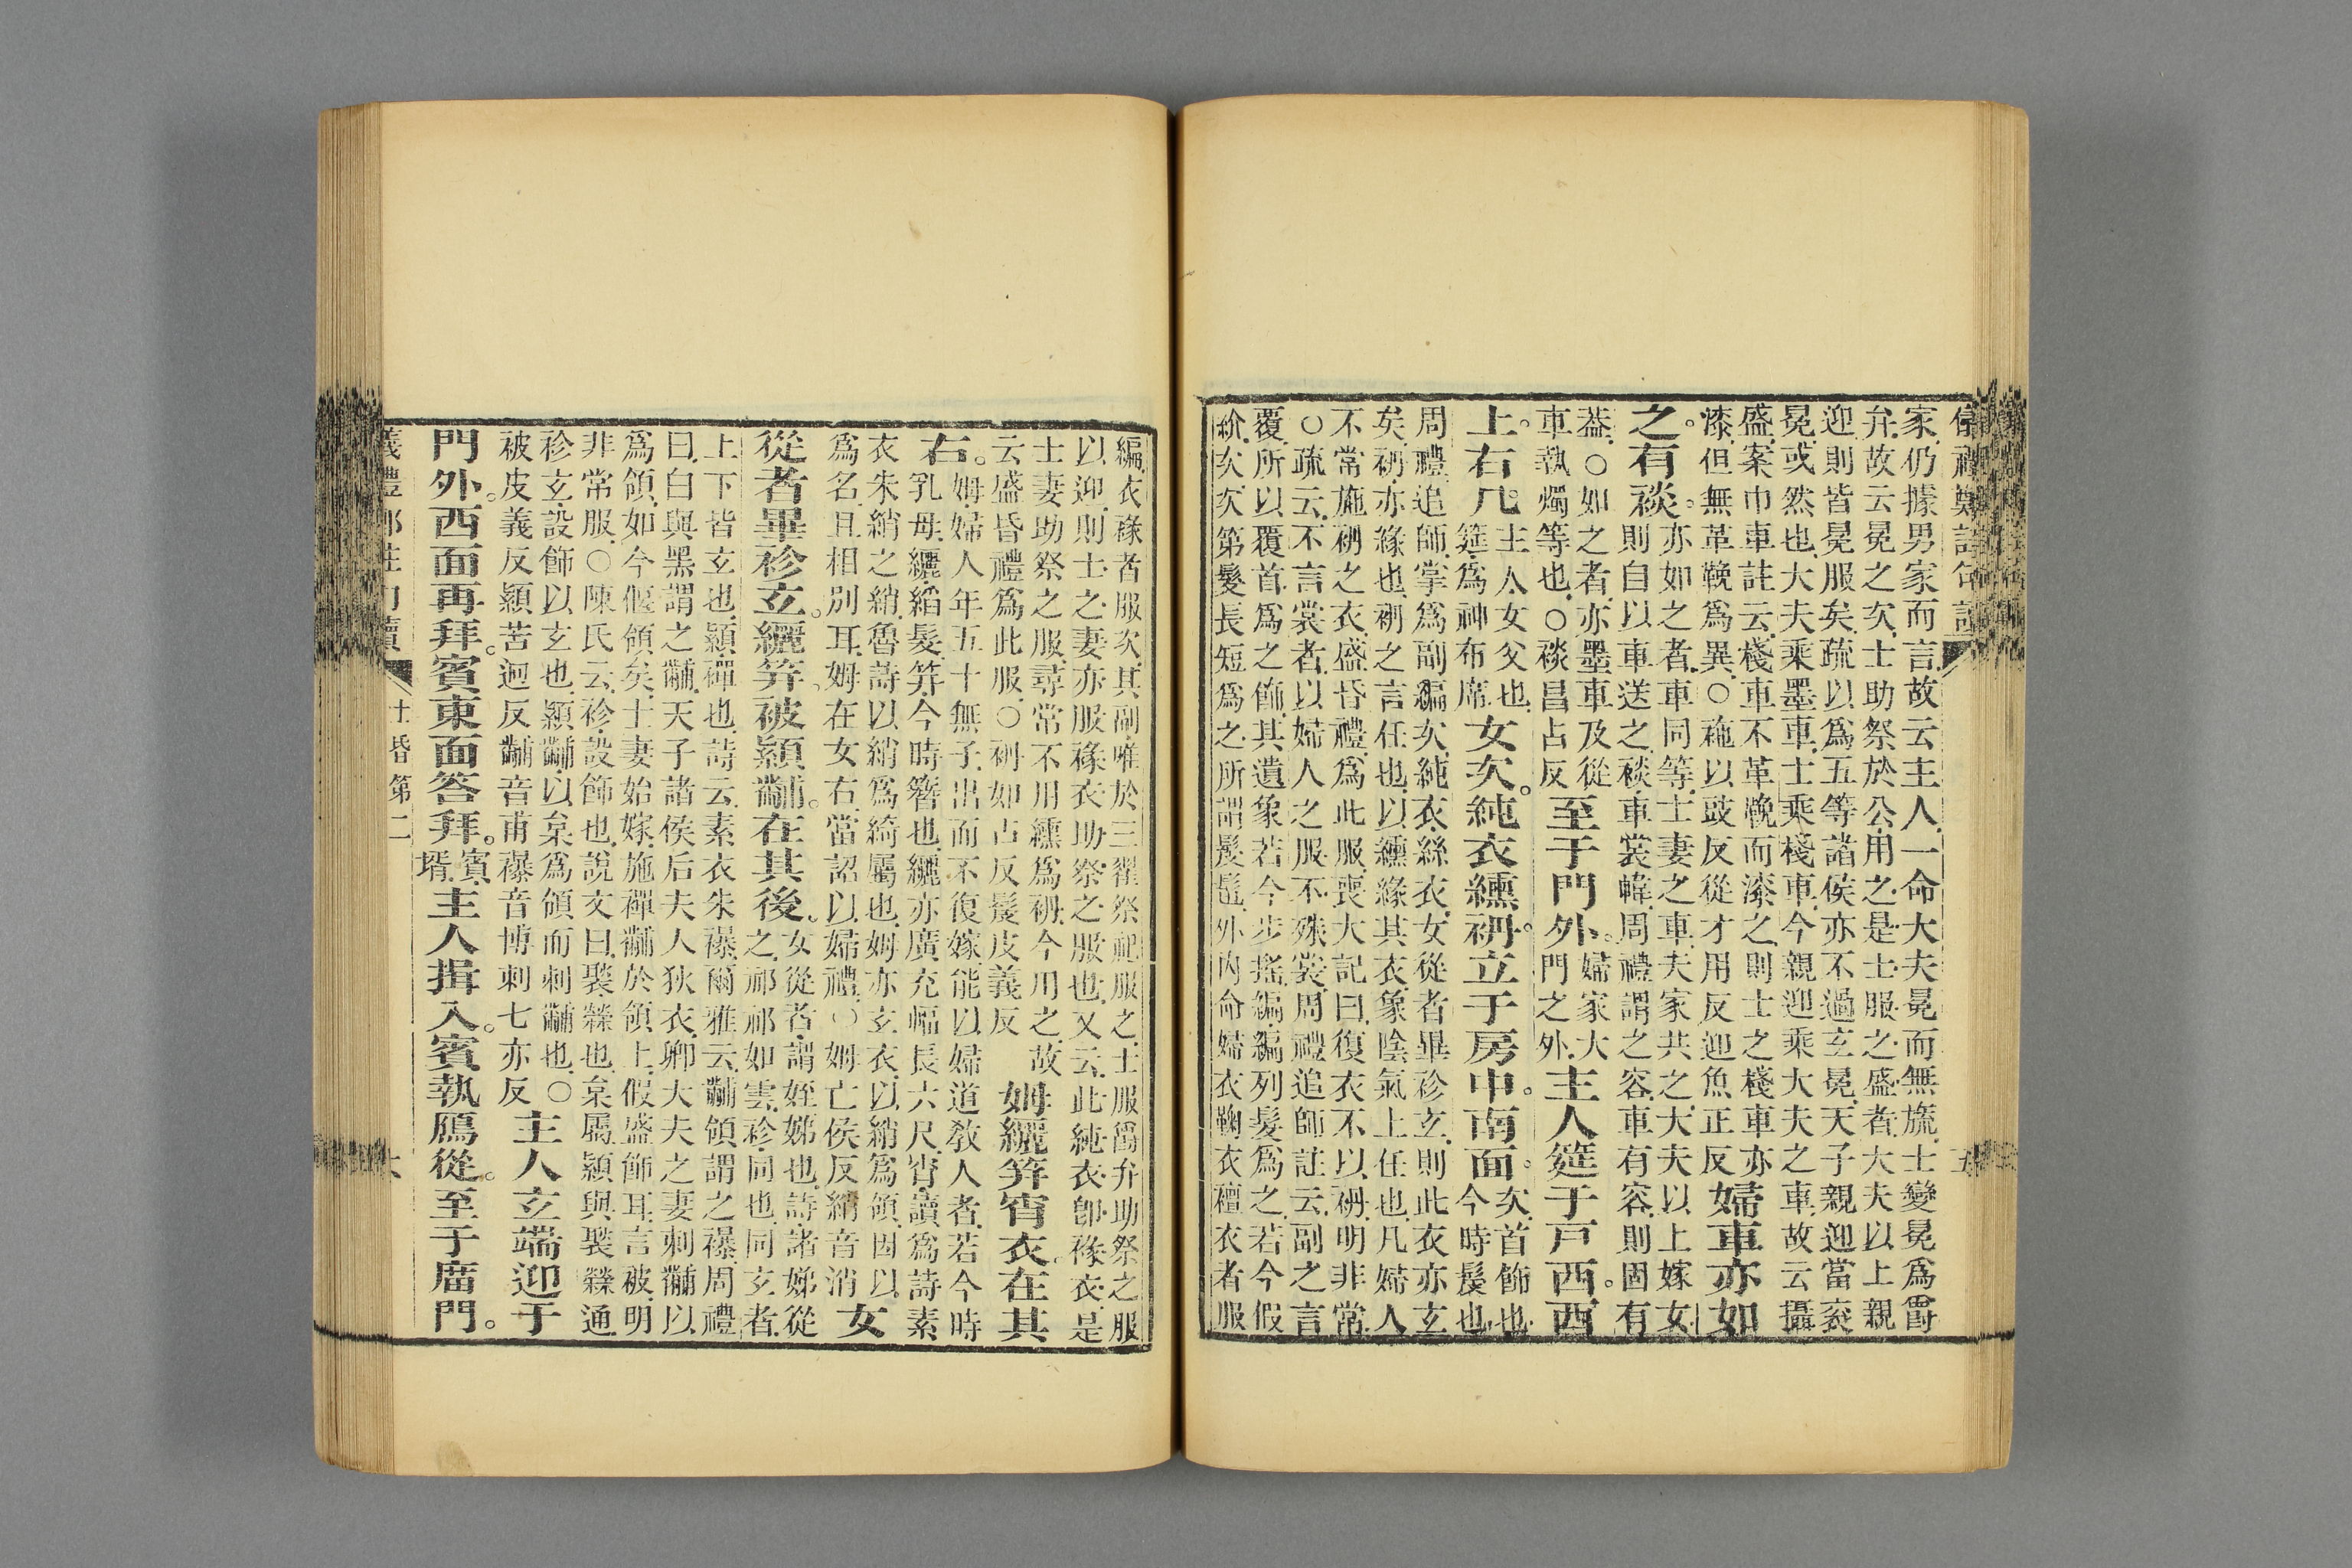 儀禮鄭註句讀 五
家、仍據男家而言、故云主人、一命大夫冕而無旒、士變冕爲爵
弁、故云冕之次、士助祭於公用之、是士服之盛者、大夫以上親
迎則皆冕服矣、疏以爲五等諸侯亦不過玄冕、天子親迎當袞
冕、或然也、大夫乘墨車、士乘棧車、今親迎乘大夫之車、故云攝
盛、案巾車註云、棧車不革鞔而漆之、則士之棧車亦
漆、但無革鞔爲異、○袘以豉反從才用反迎魚正反
婦車亦如
之。有裧。
亦如之者、車同等、士妻之車、夫家共之、大夫以上嫁女、
則自以車送之、裧、車裳幃、周禮謂之容、車有容、則固有
蓋、○如之者、亦墨車及從
車執燭等也、○裧昌占反
至于門外。
婦家大
門之外、
主人筵于戸西。西
上。右几。
主人、女父也、
筵、爲神布席
女次。純衣纁袡。立于房中。南面。
次、首飾也、
今時髲也、
周禮追師、掌爲副編次、純衣、絲衣、女從者畢袗玄、則此衣亦玄
矣、袡亦緣也、袡之言任也、以纁緣其衣、象陰氣上任也、凡婦人
不常施袡之衣、盛昏禮、爲此服、喪大記曰、復衣不以袡、明非常、
○疏云、不言裳者、以婦人之服不殊裳、周禮追師註云、副之言
覆、所以覆首、爲之飾、其遺象若今步搖、編、編列髮爲之、若今假
紒、次、次第髮長短爲之、所謂髲髢、外內命婦衣鞠衣襢衣者服
編、衣褖者服次、其副唯於三翟祭祀服之、士服爵弁助祭之服
以迎、則士之妻亦服褖衣助祭之服也、又云、此純衣、卽褖衣、是
士妻助祭之服、尋常不用纁爲袡、今用之、故
云盛昏禮爲此服、○袡如占反髲皮義反
姆纚笄宵衣。在其
右。
姆、婦人年五十無子、出而不復嫁、能以婦道敎人者、若今時
乳母、纚、縚髮、笄、今時簪也、纚亦廣充幅長六尺、宵、讀爲詩素
衣朱綃之綃、魯詩以綃爲綺屬也、姆亦玄衣、以綃爲領、因以
爲名、且相別耳、姆在女右、當詔以婦禮、○姆亡侯反綃音消
女
從者畢袗玄。纚笄。被顈黼。在其後。
女從者、謂姪娣也、詩、諸娣從
之、祁祁如雲、袗、同也、同玄者、
上下皆玄也、顈、襌也、詩云、素衣朱襮、爾雅云、黼領謂之襮、周禮
曰、白與黑謂之黼、天子諸侯后夫人狄衣、卿大夫之妻刺黼以
爲領、如今偃領矣、士妻始嫁、施襌黼於領上、假盛飾耳、言被、明
非常服、○陳氏云、袗、設飾也、說文曰、褧、檾也、枲屬、顈與褧檾通、
袗玄、設飾以玄也、顈黼、以枲爲領而刺黼也、○
被皮義反顈苦迥反黼音甫襮音博刺七亦反
主人玄端迎于
門外。西面再拜。賓東面答拜。
賓、
壻、
主人揖入。賓執鴈從。至于廟門。
儀禮鄭註句讀 士昏第二 六